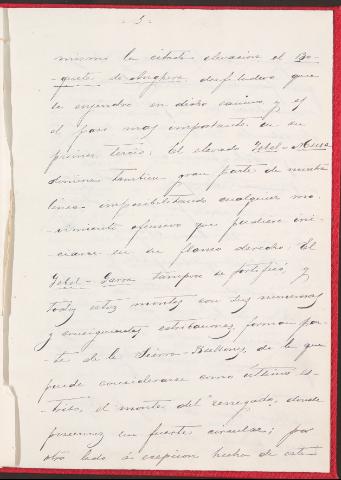 - 3 -
mismo la citada elevacion el Bo-
quete de Anghera, desfiladero que
le engendra en dicho camino y es
el paso mas importante en su
primer tercio; El elevado Jebel-Musa
domina tambien gran parte de nuestra
linea imposibilitando cualquier mo-
vimiento ofensivo que pudiera ini-
ciarse en su flanco derecho; El
Jebel-Zarra tampoco se fortificó y
todos estos montes con sus numerosas
y enriscadas estribaciones, forman par-
te de la Sierra-Bullones, de la que
puede considerarse como último es-
tribo, el monte del renegado, donde
poseemos un fuerte circular; por
otro lado á escepcion hecha de este